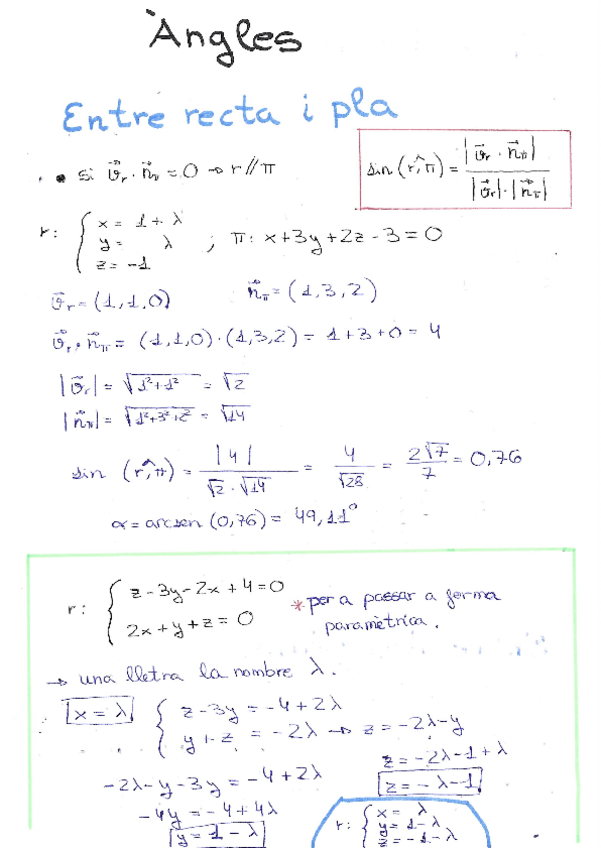 Àngles
Entre recta i pla
• si v⃗r · n⃗π = 0 → r // π
sin (r,^π) = |v⃗r · n⃗π| / |v⃗r| · |n⃗π|
r: { x = 1 + λ
y = λ
z = -1
; π: x + 3y + 2z - 3 = 0
v⃗r = (1, 1, 0) n⃗π = (1, 3, 2)
v⃗r · n⃗π = (1, 1, 0) · (1, 3, 2) = 1 + 3 + 0 = 4
|v⃗r| = √1²+1² = √2
|n⃗π| = √1²+3²+2² = √14
sin (r,^π) = |4| / √2 · √14 = 4 / √28 = 2√7 / 7 = 0,76
α = arcsen (0,76) = 49,11°
r: { z - 3y - 2x + 4 = 0
2x + y + z = 0
* per a passar a forma
paramètrica.
→ una lletra la nombre λ.
x = λ { z - 3y = -4 + 2λ
y + z = -2λ → z = -2λ - y
z = -2λ - 1 + λ
z = -λ - 1
-2λ - y - 3y = -4 + 2λ
-4y = -4 + 4λ
y = 1 - λ
r: { x = λ
y = 1 - λ
z = -1 - λ